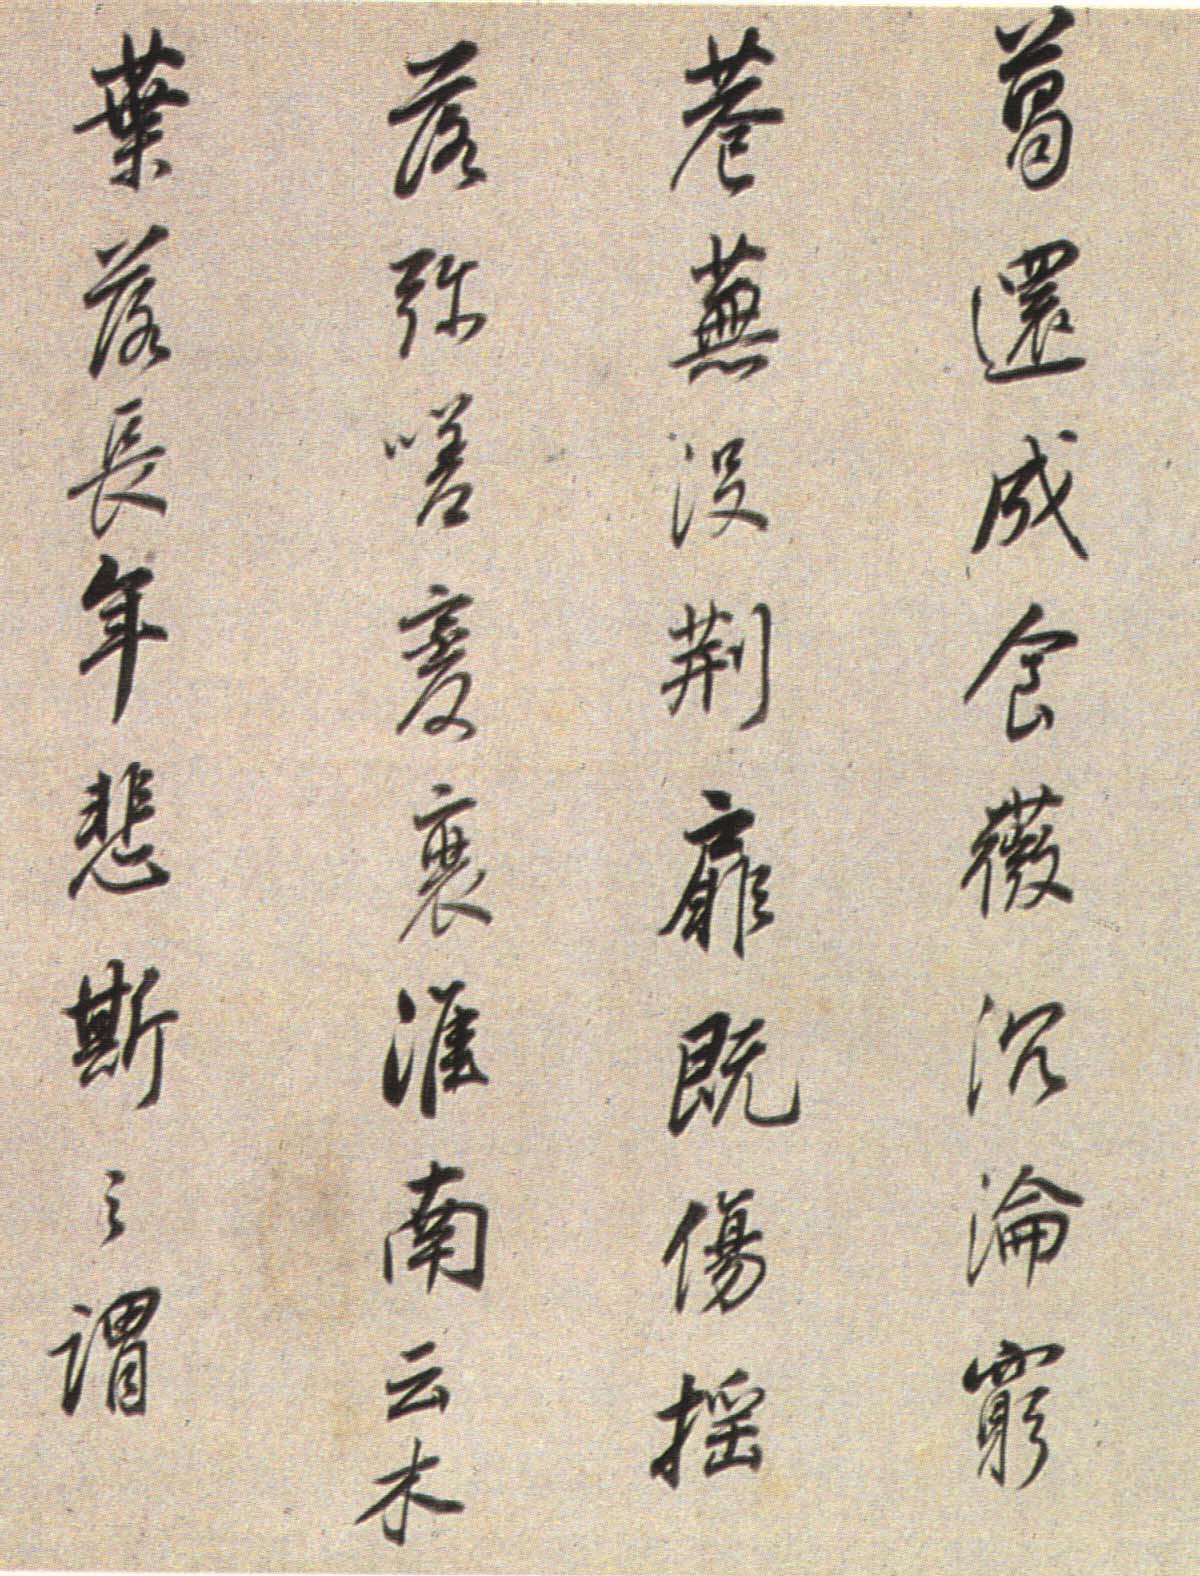 葛還成食薇沉淪窮
巷蕪没荆扉既傷揺
落弥嗟變衰淮南云木
葉落長年悲斯之謂